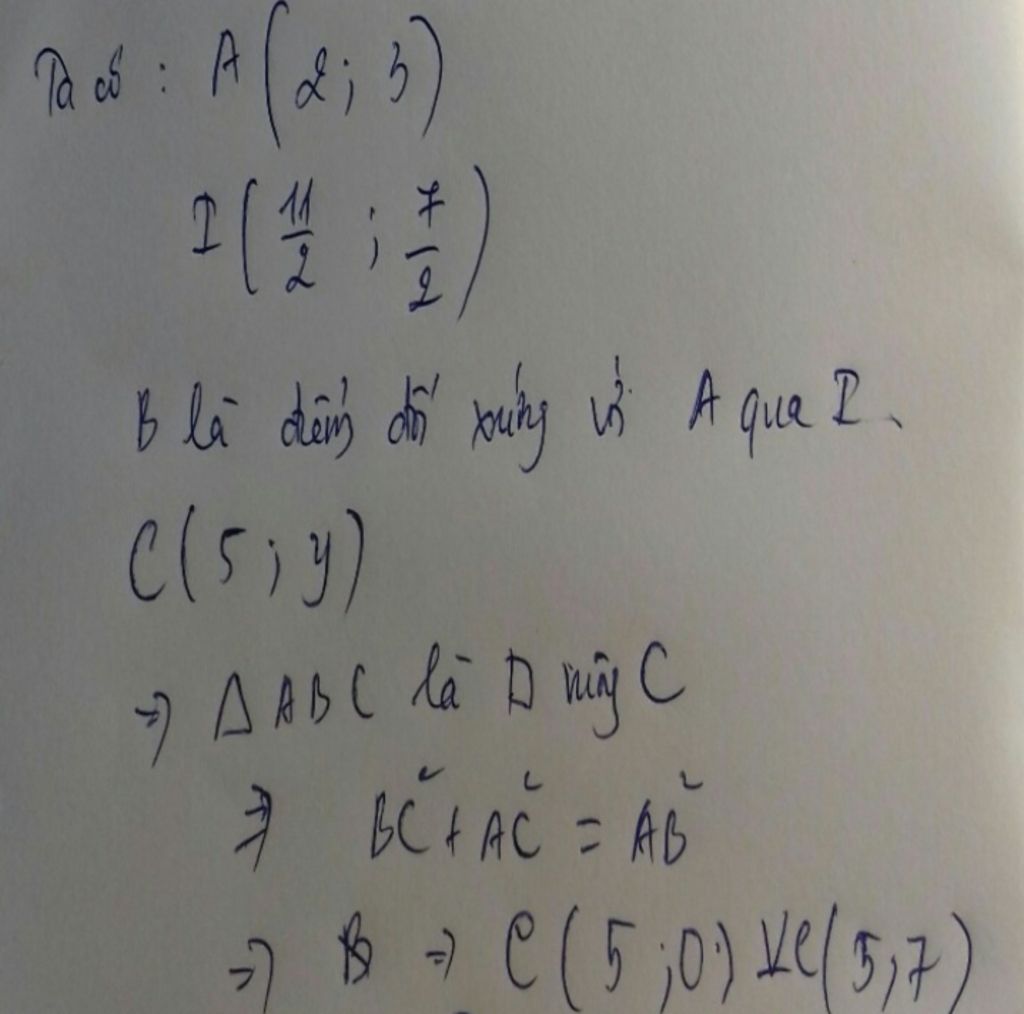 Ta có : A ( 2 ; 3 )
I ( 11/2 ; 7/2 )
B là điểm đối xứng với A qua I.
C ( 5 ; y )
=> Δ ABC là Δ vuông C
=> BC² + AC² = AB²
=> B => C ( 5 ; 0 ) VC ( 5 ; 7 )